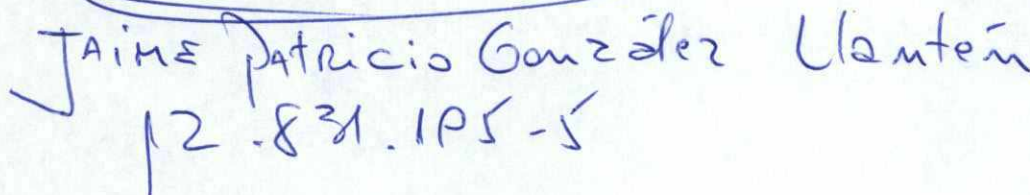 JAIME Patricio González Llantén
12.831.195-5